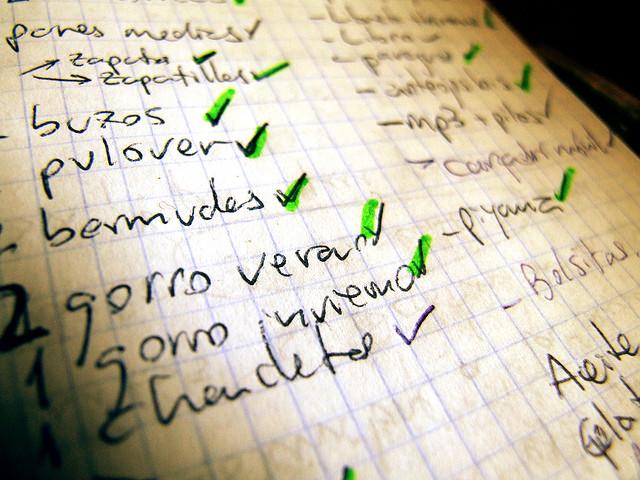 pares medias
→ zapato
→ zapatillas
- buzos
pulover
bermudas
2 gorro verano
1 gorro invierno
1 chancletas
- Libro
- paraguas
- anteojos
- mp3 + pilas
- Cargador
- Piyama
- Bolsitas
Aceite